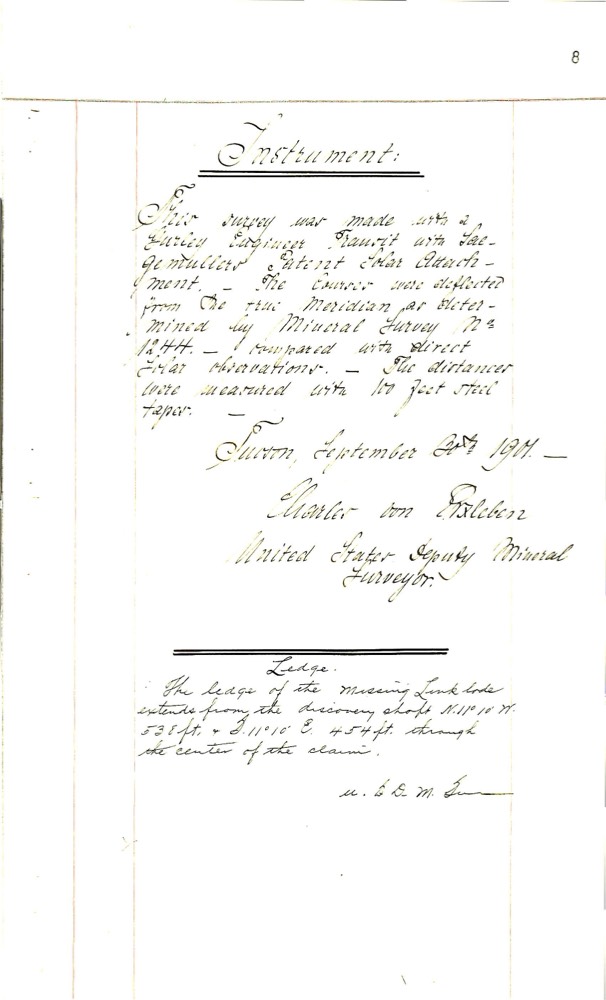 8
Instrument:
This survey was made with a
Gurley Engineer Transit with Sae-
gemullers Patent Solar Attach-
ment. — The courses were deflected
from the true Meridian as deter-
mined by Mineral Survey No
1244. — compared with direct
Solar observations. — The distances
were measured with 100 feet steel
tapes. —
Tucson, September 30th 1901. —
Charles von Erxleben
United States Deputy Mineral
Surveyor.
Ledge.
The ledge of the Missing Link lode
extends from the discovery shaft N. 11° 10' W.
538 ft. & S. 11° 10' E. 454 ft. through
the center of the claim.
U. S. D. M. Sur